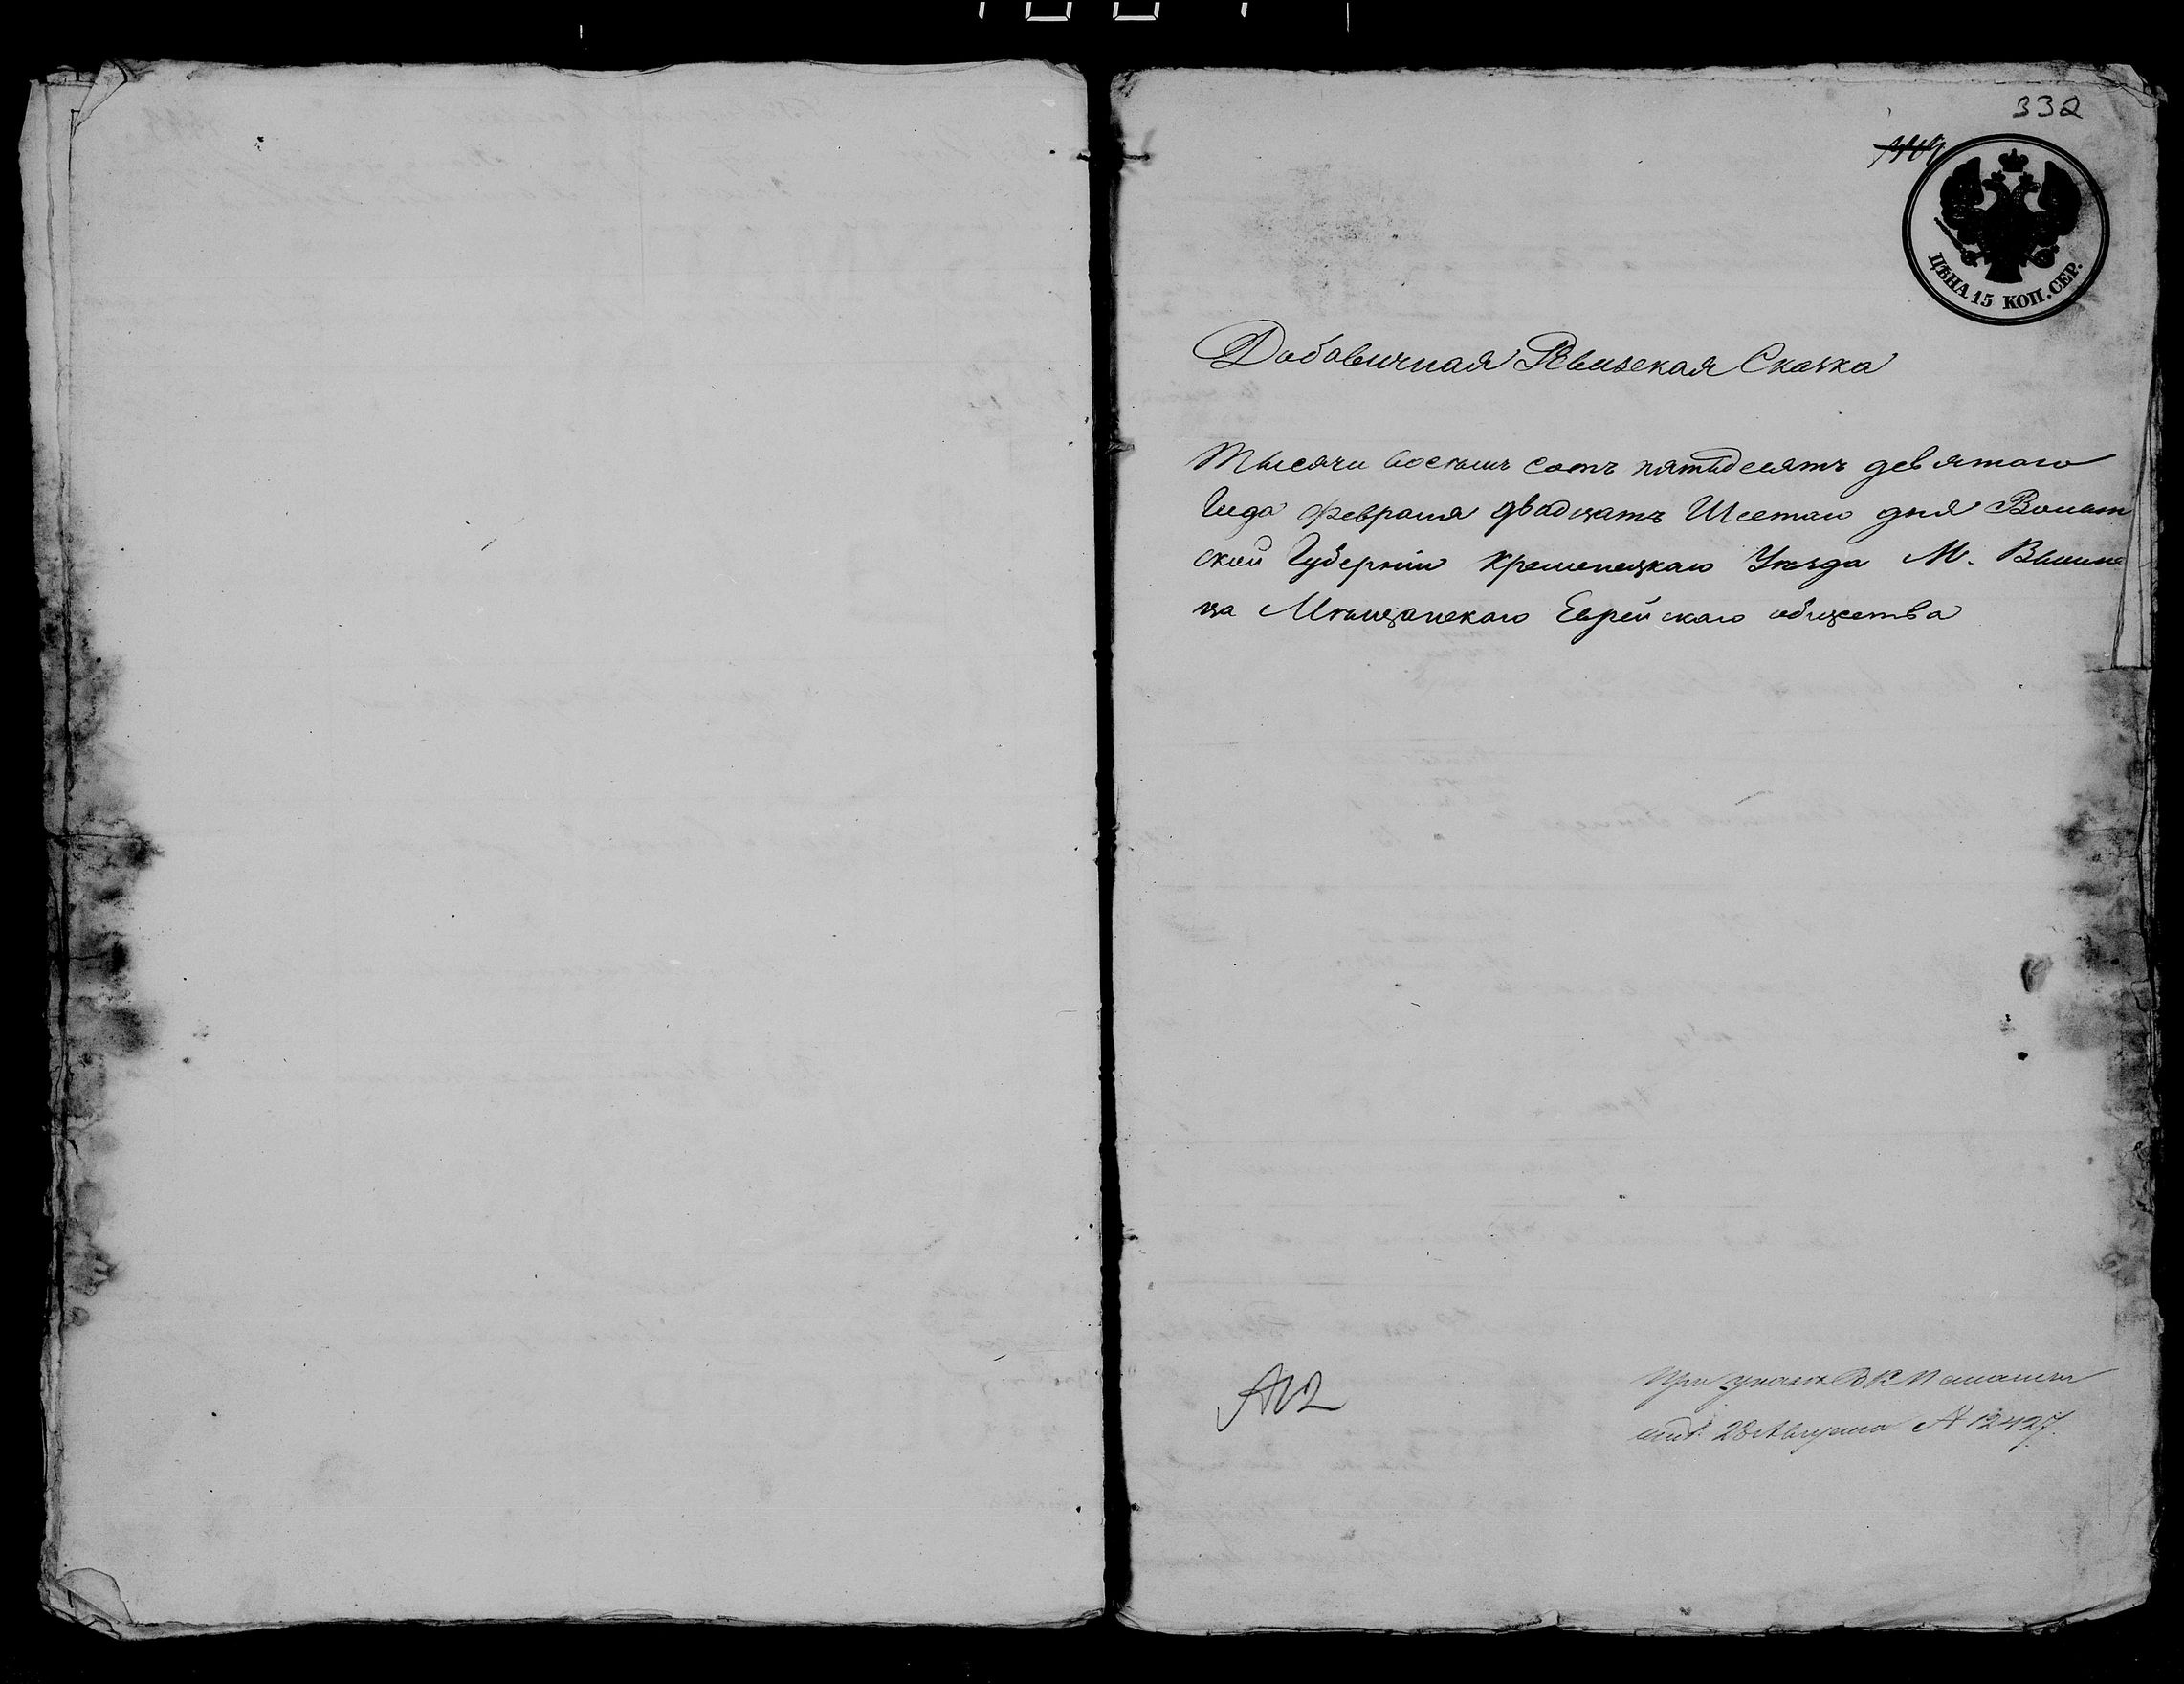 332
ЦѢНА 15 КОП. СЕР.
Добавочная Ревизская Сказка
Тысячи восемь сотъ пятидесятъ девятаго
Года февраля двадцать Шестаго дня Волын
ской Губерніи Кременецкаго Уезда М. Вышне
ца Мѣщанскаго Еврейскаго общества
При указѣ
28 Августа № 12427.